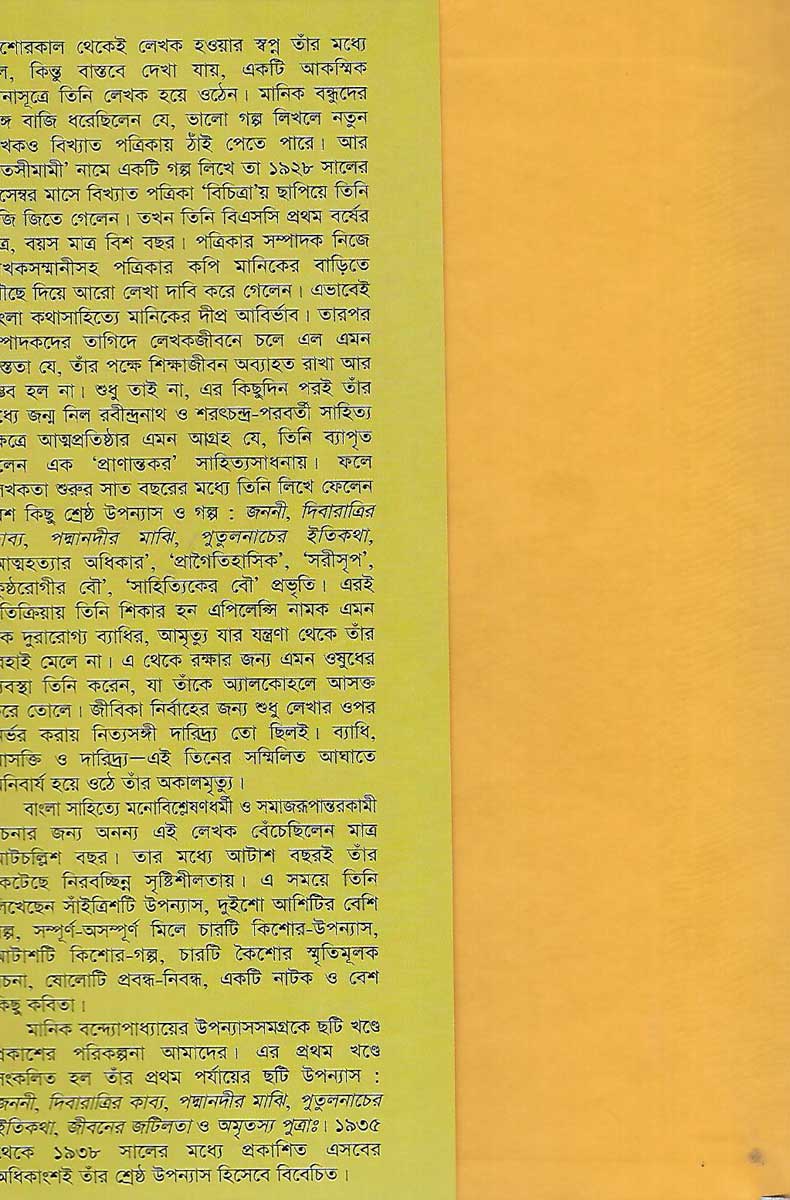 শোরকাল থেকেই লেখক হওয়ার স্বপ্ন তাঁর মধ্যে
ল, কিন্তু বাস্তবে দেখা যায়, একটি আকস্মিক
নাসূত্রে তিনি লেখক হয়ে ওঠেন। মানিক বন্ধুদের
ঙ্গে বাজি ধরেছিলেন যে, ভালো গল্প লিখলে নতুন
খকও বিখ্যাত পত্রিকায় ঠাঁই পেতে পারে। আর
তসীমামী’ নামে একটি গল্প লিখে তা ১৯২৮ সালের
সেম্বর মাসে বিখ্যাত পত্রিকা ‘বিচিত্রা’য় ছাপিয়ে তিনি
জি জিতে গেলেন। তখন তিনি বিএসসি প্রথম বর্ষের
ত্র, বয়স মাত্র বিশ বছর। পত্রিকার সম্পাদক নিজে
খকসম্মানীসহ পত্রিকার কপি মানিকের বাড়িতে
ৗছে দিয়ে আরো লেখা দাবি করে গেলেন। এভাবেই
ংলা কথাসাহিত্যে মানিকের দীপ্র আবির্ভাব। তারপর
ম্পাদকদের তাগিদে লেখকজীবনে চলে এল এমন
স্ততা যে, তাঁর পক্ষে শিক্ষাজীবন অব্যাহত রাখা আর
ম্ভব হল না। শুধু তাই না, এর কিছুদিন পরই তাঁর
ধ্যে জন্ম নিল রবীন্দ্রনাথ ও শরৎচন্দ্র-পরবর্তী সাহিত্য
ক্ষেত্রে আত্মপ্রতিষ্ঠার এমন আগ্রহ যে, তিনি ব্যাপৃত
লেন এক ‘প্রাণান্তকর’ সাহিত্যসাধনায়। ফলে
খকতা শুরুর সাত বছরের মধ্যে তিনি লিখে ফেলেন
শ কিছু শ্রেষ্ঠ উপন্যাস ও গল্প : জননী, দিবারাত্রির
াব্য, পদ্মানদীর মাঝি, পুতুলনাচের ইতিকথা,
আত্মহত্যার অধিকার’, ‘প্রাগৈতিহাসিক’, ‘সরীসৃপ’,
কুষ্ঠরোগীর বৌ’, ‘সাহিত্যিকের বৌ’ প্রভৃতি। এরই
তিক্রিয়ায় তিনি শিকার হন এপিলেন্সি নামক এমন
ক দুরারোগ্য ব্যাধির, আমৃত্যু যার যন্ত্রণা থেকে তাঁর
হোই মেলে না। এ থেকে রক্ষার জন্য এমন ওষুধের
্যবস্থা তিনি করেন, যা তাঁকে অ্যালকোহলে আসক্ত
রে তোলে। জীবিকা নির্বাহের জন্য শুধু লেখার ওপর
র্ভর করায় নিত্যসঙ্গী দারিদ্র্য তো ছিলই। ব্যাধি,
াসক্তি ও দারিদ্র্য—এই তিনের সম্মিলিত আঘাতে
নিবার্য হয়ে ওঠে তাঁর অকালমৃত্যু।
বাংলা সাহিত্যে মনোবিশ্লেষণধর্মী ও সমাজরূপান্তরকামী
চনার জন্য অনন্য এই লেখক বেঁচেছিলেন মাত্র
াটচল্লিশ বছর। তার মধ্যে আটাশ বছরই তাঁর
কেটেছে নিরবচ্ছিন্ন সৃষ্টিশীলতায়। এ সময়ে তিনি
লিখেছেন সাঁইত্রিশটি উপন্যাস, দুইশো আশিটির বেশি
ল্প, সম্পূর্ণ-অসম্পূর্ণ মিলে চারটি কিশোর-উপন্যাস,
আটাশটি কিশোর-গল্প, চারটি কৈশোর স্মৃতিমূলক
চনা, ষোলোটি প্রবন্ধ-নিবন্ধ, একটি নাটক ও বেশ
কিছু কবিতা।
মানিক বন্দ্যোপাধ্যায়ের উপন্যাসসমগ্রকে ছটি খণ্ডে
প্রকাশের পরিকল্পনা আমাদের। এর প্রথম খণ্ডে
সংকলিত হল তাঁর প্রথম পর্যায়ের ছটি উপন্যাস :
জননী, দিবারাত্রির কাব্য, পদ্মানদীর মাঝি, পুতুলনাচের
ইতিকথা, জীবনের জটিলতা ও অমৃতস্য পুত্রাঃ। ১৯৩৫
থেকে ১৯৩৮ সালের মধ্যে প্রকাশিত এসবের
অধিকাংশই তাঁর শ্রেষ্ঠ উপন্যাস হিসেবে বিবেচিত।